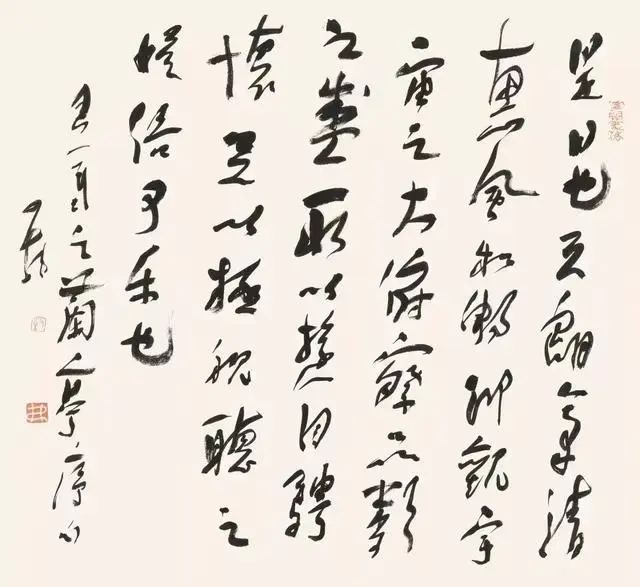 是日也天朗氣清
惠風和暢仰觀宇
宙之大俯察品類
之盛所以遊目騁
懷足以極視聽之
娛信可樂也
王羲之蘭亭序句